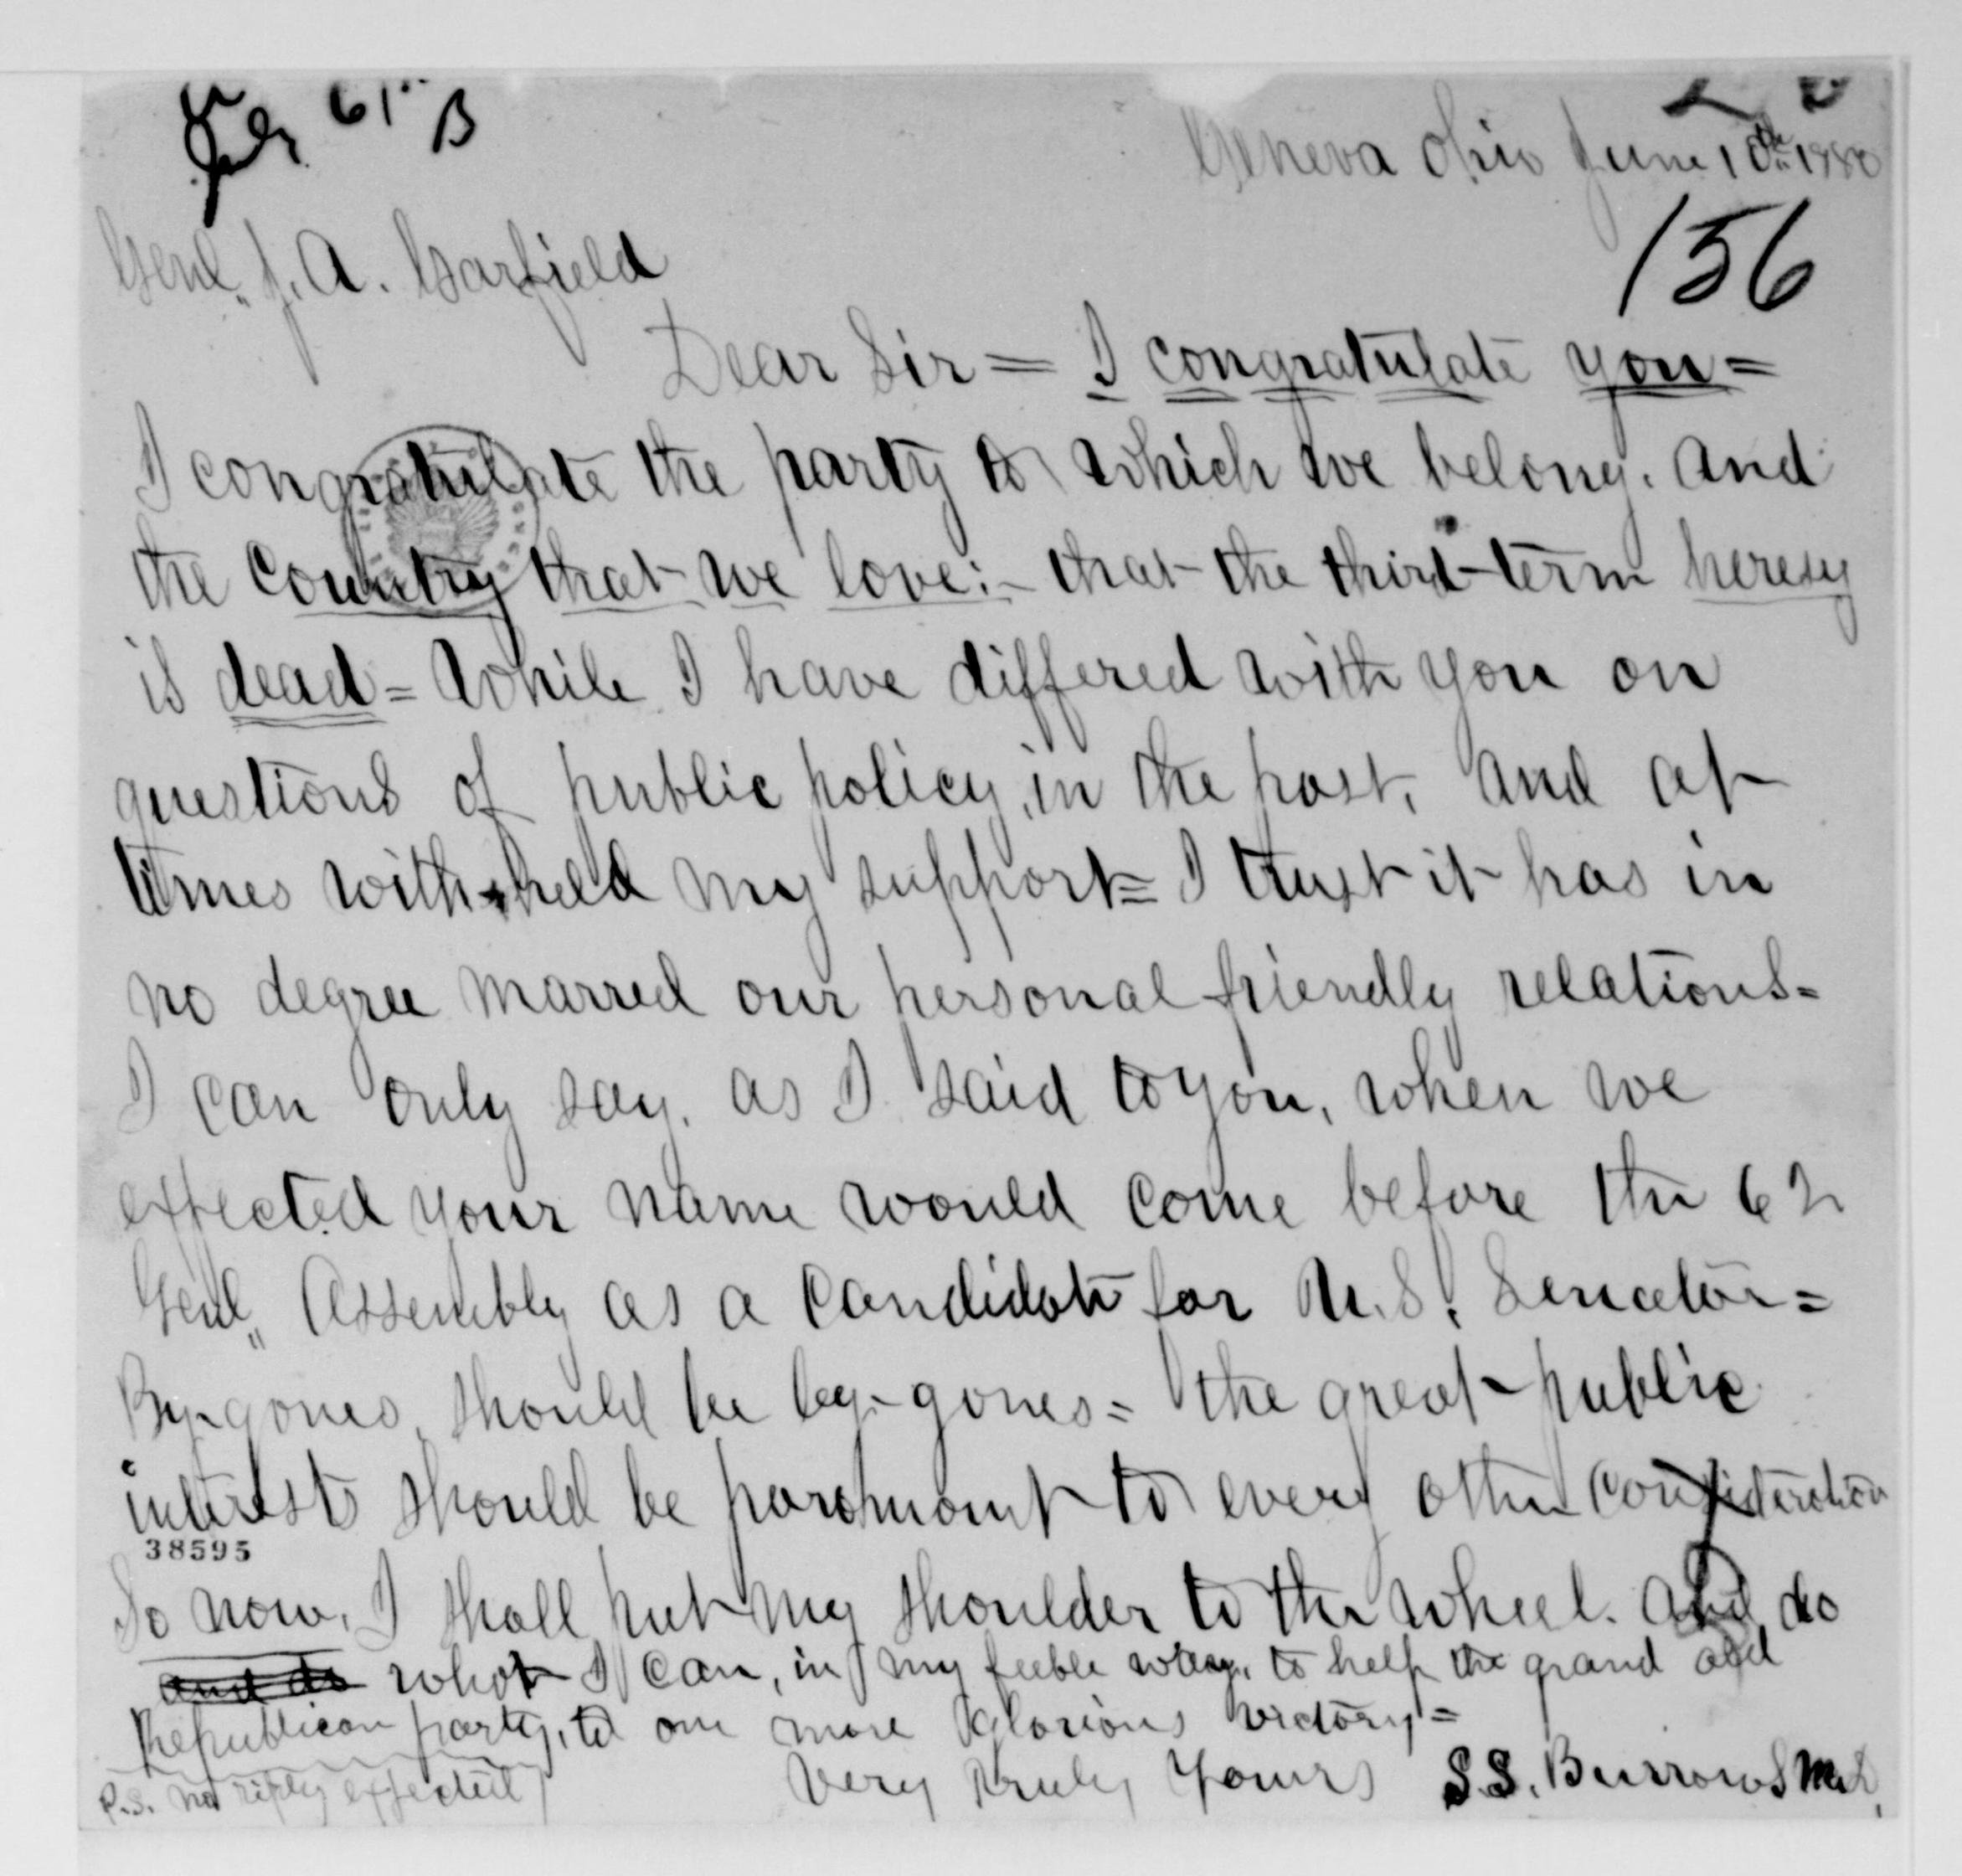 61 B
Geneva Ohio June 10th 1880
156
Genl. J. A. Garfield
Dear Sir = I congratulate you =
I congratulate the party to which we belong. and
the country that we love:- that the third-term heresy
is dead = While I have differed with you on
questions of public policy, in the past, and at
times with-held my support = I trust it has in
no degree marred our personal friendly relations =
I can only say. as I said to you, when we
expected your name would come before the 62
Genl. Assembly as a candidate for U.S. Senator =
By-gones, should be by-gones = the great public
interests should be paramount to every other consideration
38595
So now, I shall put my shoulder to the wheel. and do
and do what I can, in my feeble way, to help the grand old
Republican party, to one more glorious victory =
Very truly yours S.S. Burrows M.D.
P.S. no reply expected